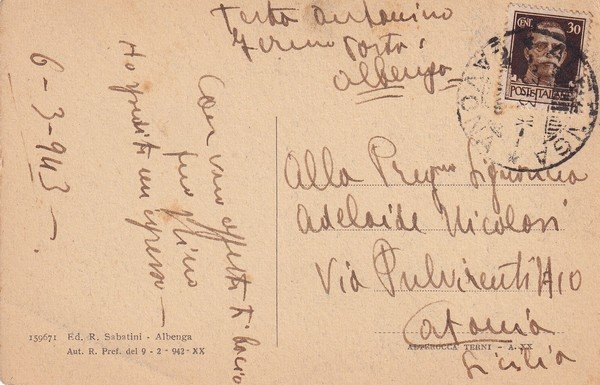 Testa Antonino
fermo posta
Albenga
CENT. 30
POSTE ITALIANE
Alla Preg.ma Signorina
Adelaide Nicolosi
Via Pulvirenti
Catania
Sicilia
6-3-943-
Ho spedito un espresso—
Con vivo affetto ti bacio
tuo Nino
159671 Ed. R. Sabatini - Albenga
Aut. R. Pref. del 9 - 2 - 942 - XX
ALTEROCCA TERNI - A. XX